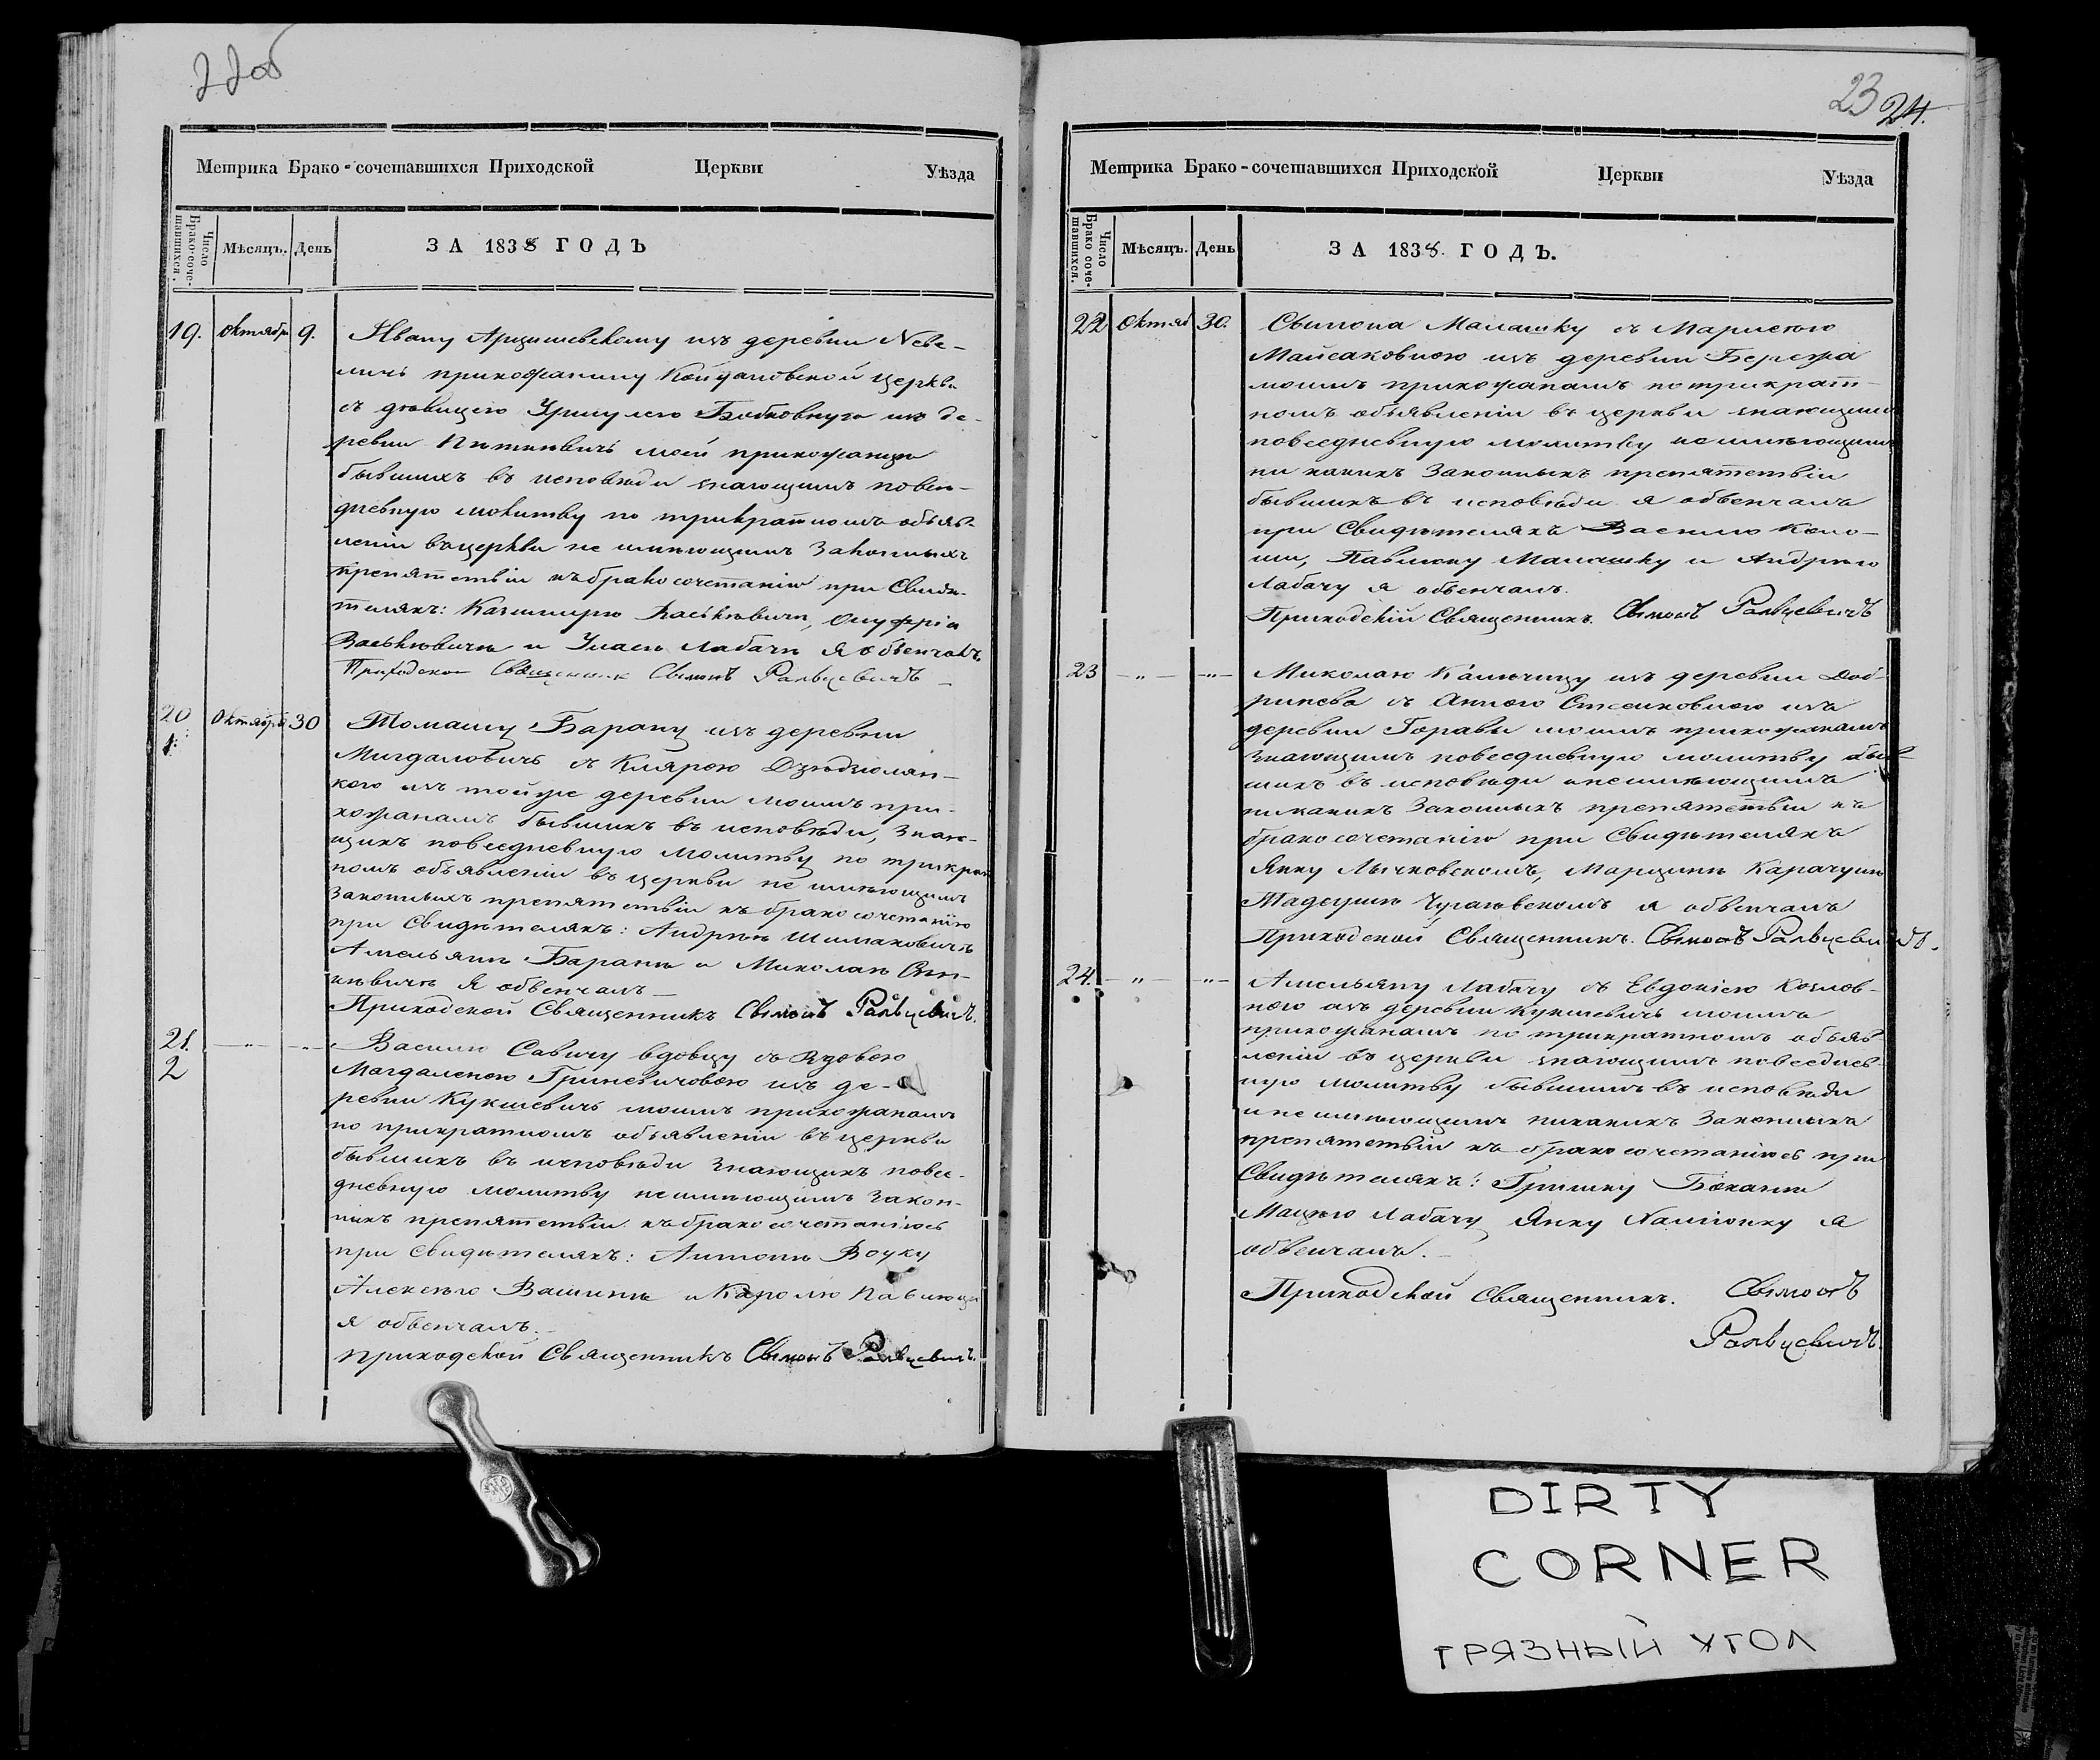 22об
Метрика Брако-сочетавшихся Приходской Церкви Уѣзда
Число Брако-соче-тавшихся.
Мѣсяцъ.
День
ЗА 1838 ГОДЪ
19. Октябрь 9. Ивану Арцишевскому изъ деревни Неве-
личь прихожанину Койдановской церкви
съ дѣвицею Уршулею Бобковную изъ де-
ревни Питкевичь моей прихожанци
бывшихъ въ исповѣди знающимъ повсе-
дневную молитву по трикратномъ объяв-
леніи въ церкви не имѣющимъ Законныхъ
препятствіи къ бракосочетанію при Свидѣ-
теляхъ: Казимирю Васьковичи, Онуфрія
Васьковича и Лабачи я обвенчалъ
Приходской Священник Сымонъ
20 1. Октября 30 Томашу Барану изъ деревни
Мигдаловичъ съ Клярою
кого изъ тойже деревни моимъ при-
хожанамъ бывшихъ въ исповѣди, знаю-
щихъ повседневную молитву по трикрат
номъ объявленіи въ церкви не имѣющимъ
Законныхъ препятствіи къ бракосочетанію
при Свидѣтеляхъ: Андрѣю Шимановичѣ
Амельянѣ Баранѣ и Миколаѣ
я обвенчалъ
Приходской Священникъ Сымонъ
21. 2 Василю Савичу вдовцу съ вдовою
Магдаленою Гриневичовою изъ де-
ревни Кукшевичь моимъ прихожанамъ
по трикратномъ объявленіи въ церкви
бывшихъ въ исповѣди знающихъ повсе-
дневную молитву неимѣющимъ закон-
ныхъ препятствіи къ бракосочетаніюсь
при свидѣтеляхъ: Антонѣ Воуку
Алексѣю Вашинѣ и Каролю
я обвенчалъ.
приходской Священникъ Сымонъ
23 24.
Метрика Брако-сочетавшихся Приходской Церкви Уѣзда
Число Брако соче-тавшихся.
Мѣсяцъ.
День
ЗА 1838. ГОДЪ.
22 Октяб 30. Сымона Малашку съ Марысею
Майсаковною изъ деревни Бережа
моимъ прихожанамъ по трикрат-
номъ объявленіи въ церкви знающимъ
повседневную молитву неимѣющимъ
ни какихъ Законныхъ препятствіи
бывшихъ въ исповѣди я обвенчалъ
при Свидѣтеляхъ Василю Коло-
ши, Павлюку Малашку и Андрѣю
Лабачу я обвенчалъ.
Приходскій Священникъ. Сымонъ
23 Миколаю изъ деревни Доб-
ринева съ Анною изъ
деревни Горавы моимъ прихожанамъ
Знающимъ повседневную молитву быв-
шихъ въ исповѣди и неимѣющимъ
никакихъ Законныхъ препятствіи къ
бракосочетанію при Свидѣтеляхъ
Янку Лычковскомъ, Марцинѣ Карачунѣ
Тадеушѣ я обвенчалъ
Приходской Священникъ. Сымонъ
24. Амельяну Лабачу съ Евдокіею Козлов-
ного изъ деревни Кукшевичь моимъ
прихожанамъ по трикратномъ объяв
леніи въ церкви знающимъ повседнев-
ную молитву бывшимъ въ исповѣди
и неимѣющимъ никакихъ Законныхъ
препятствіи къ бракосочетаніюсь при
Свидѣтеляхъ: Гришку Боканѣ
Мацѣю Лабачу Янку я
обвенчалъ.
Приходской Священникъ. Сымонъ
DIRTY
CORNER
ГРЯЗНЫЙ УГОЛ